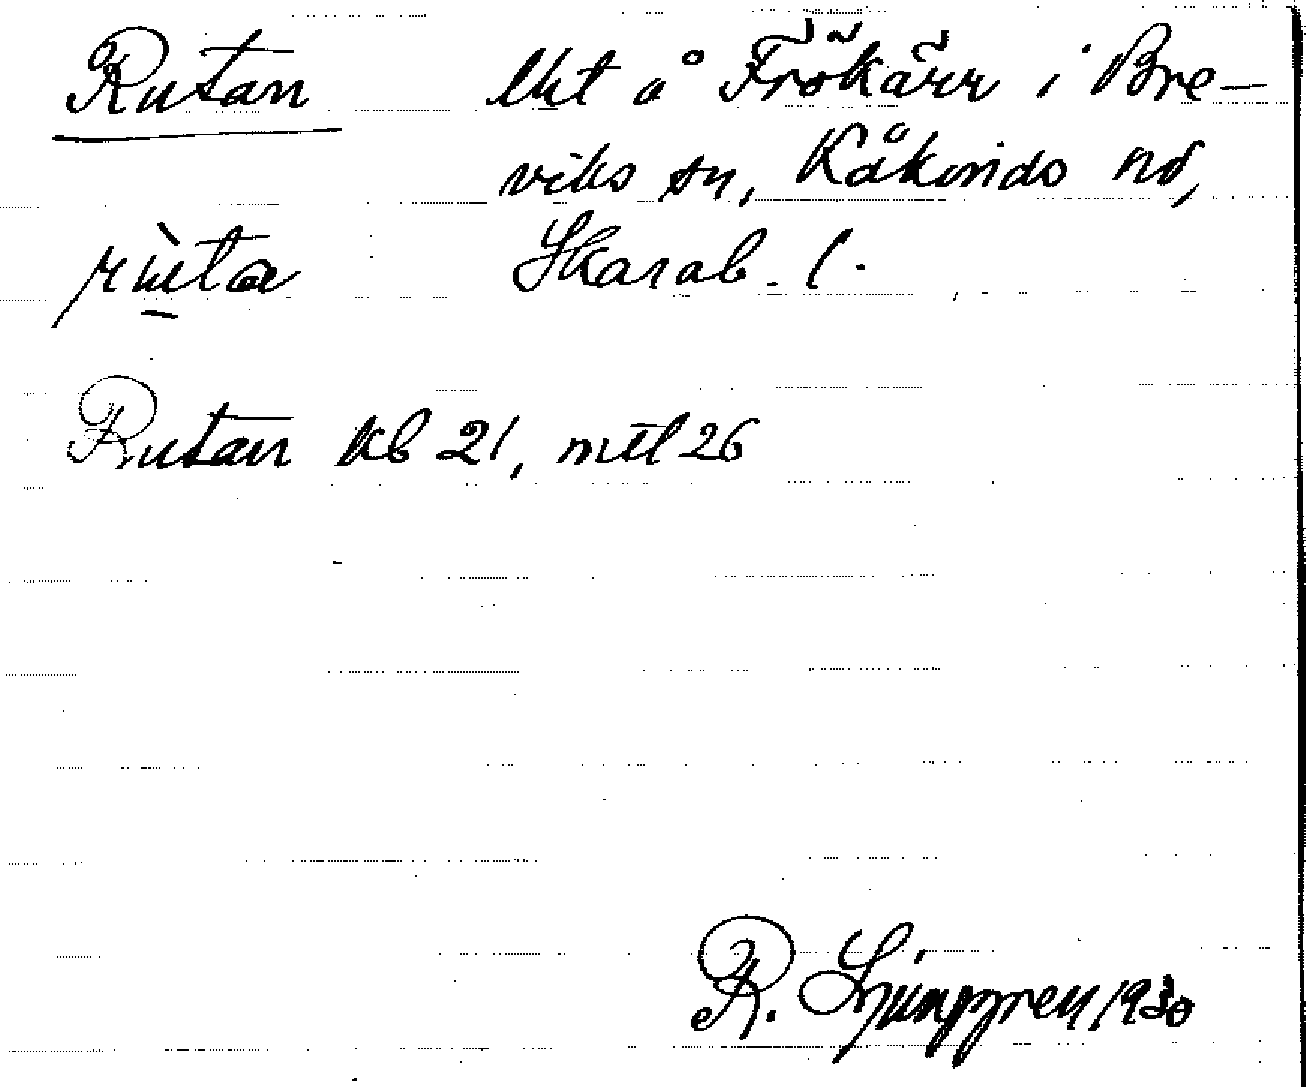 Rutan lht å Frökärr i Bre-
viks sn, Kåkinds hd,
rùta Skarab. l.
Rutan kb 21, mtl 26
R. Ljunggren 1930